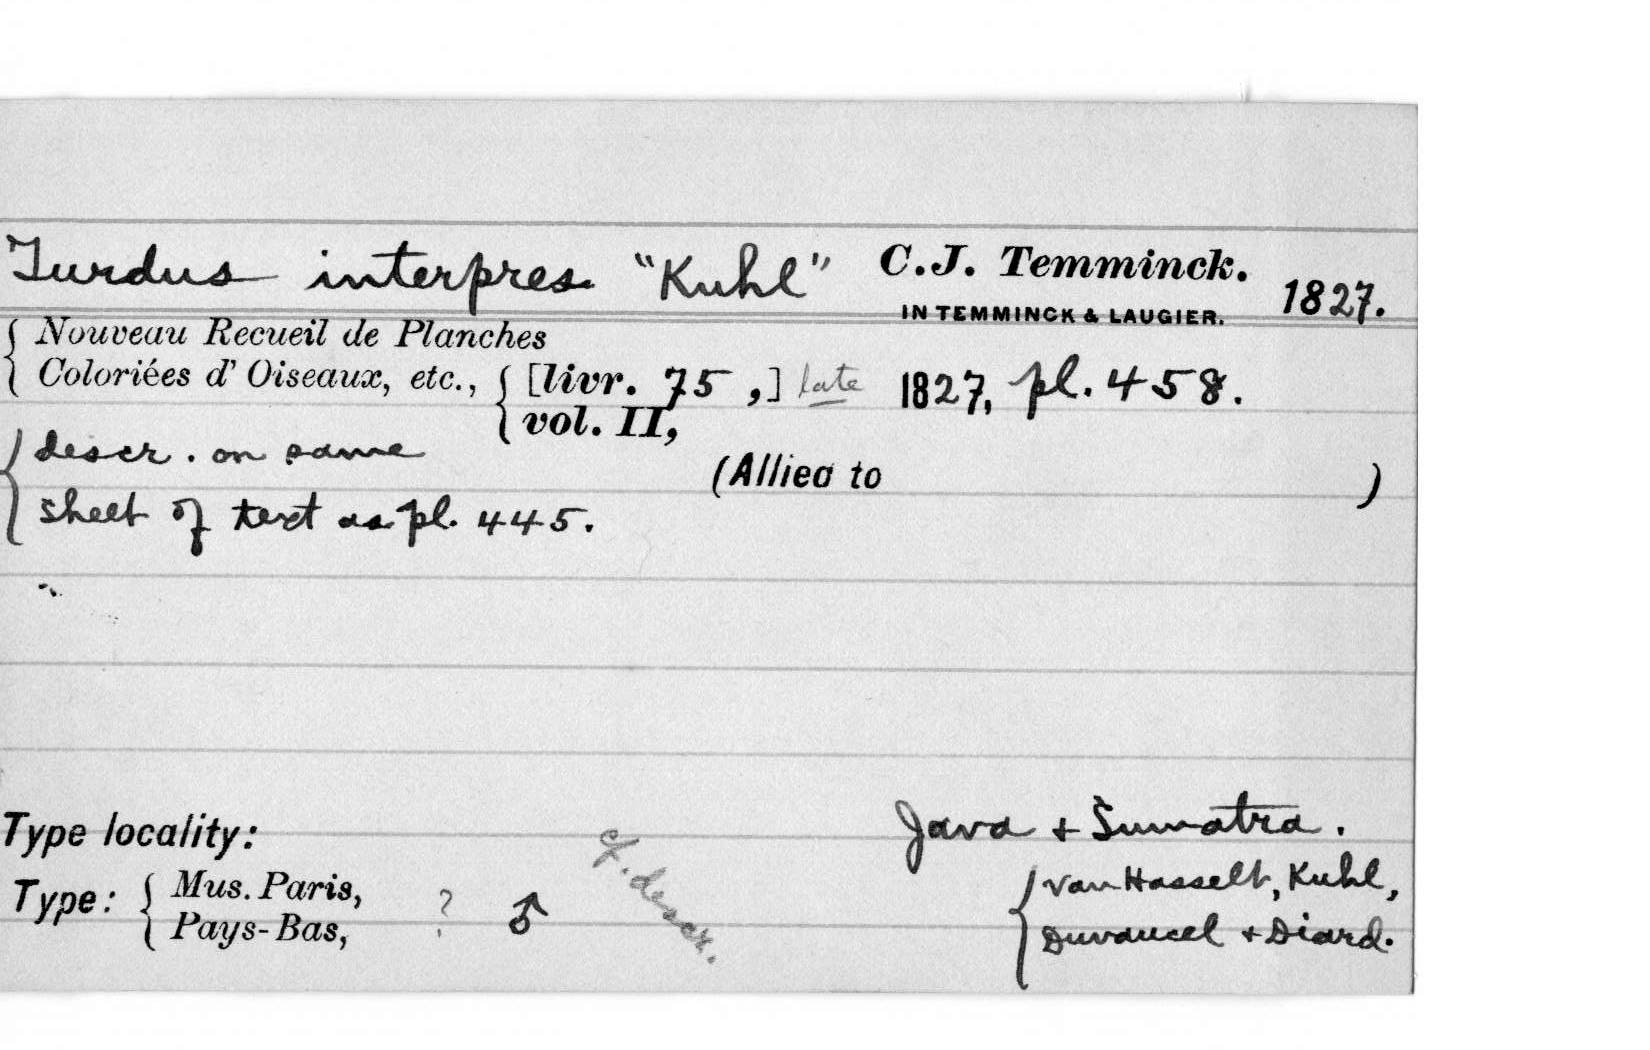 Turdus interpres "Kuhl" C.J. Temminck. 1827.
IN TEMMINCK & LAUGIER.
Nouveau Recueil de Planches
Coloriées d' Oiseaux, etc., [livr. 75 ,] late 1827, pl. 458.
vol. II,
descr. on same
(Allied to )
sheet of text as pl. 445.
Type locality: Java + Sumatra.
Type: Mus. Paris, ? ♂ cf. descr. van Hasselt, Kuhl,
Pays-Bas, Duvaucel + Diard.